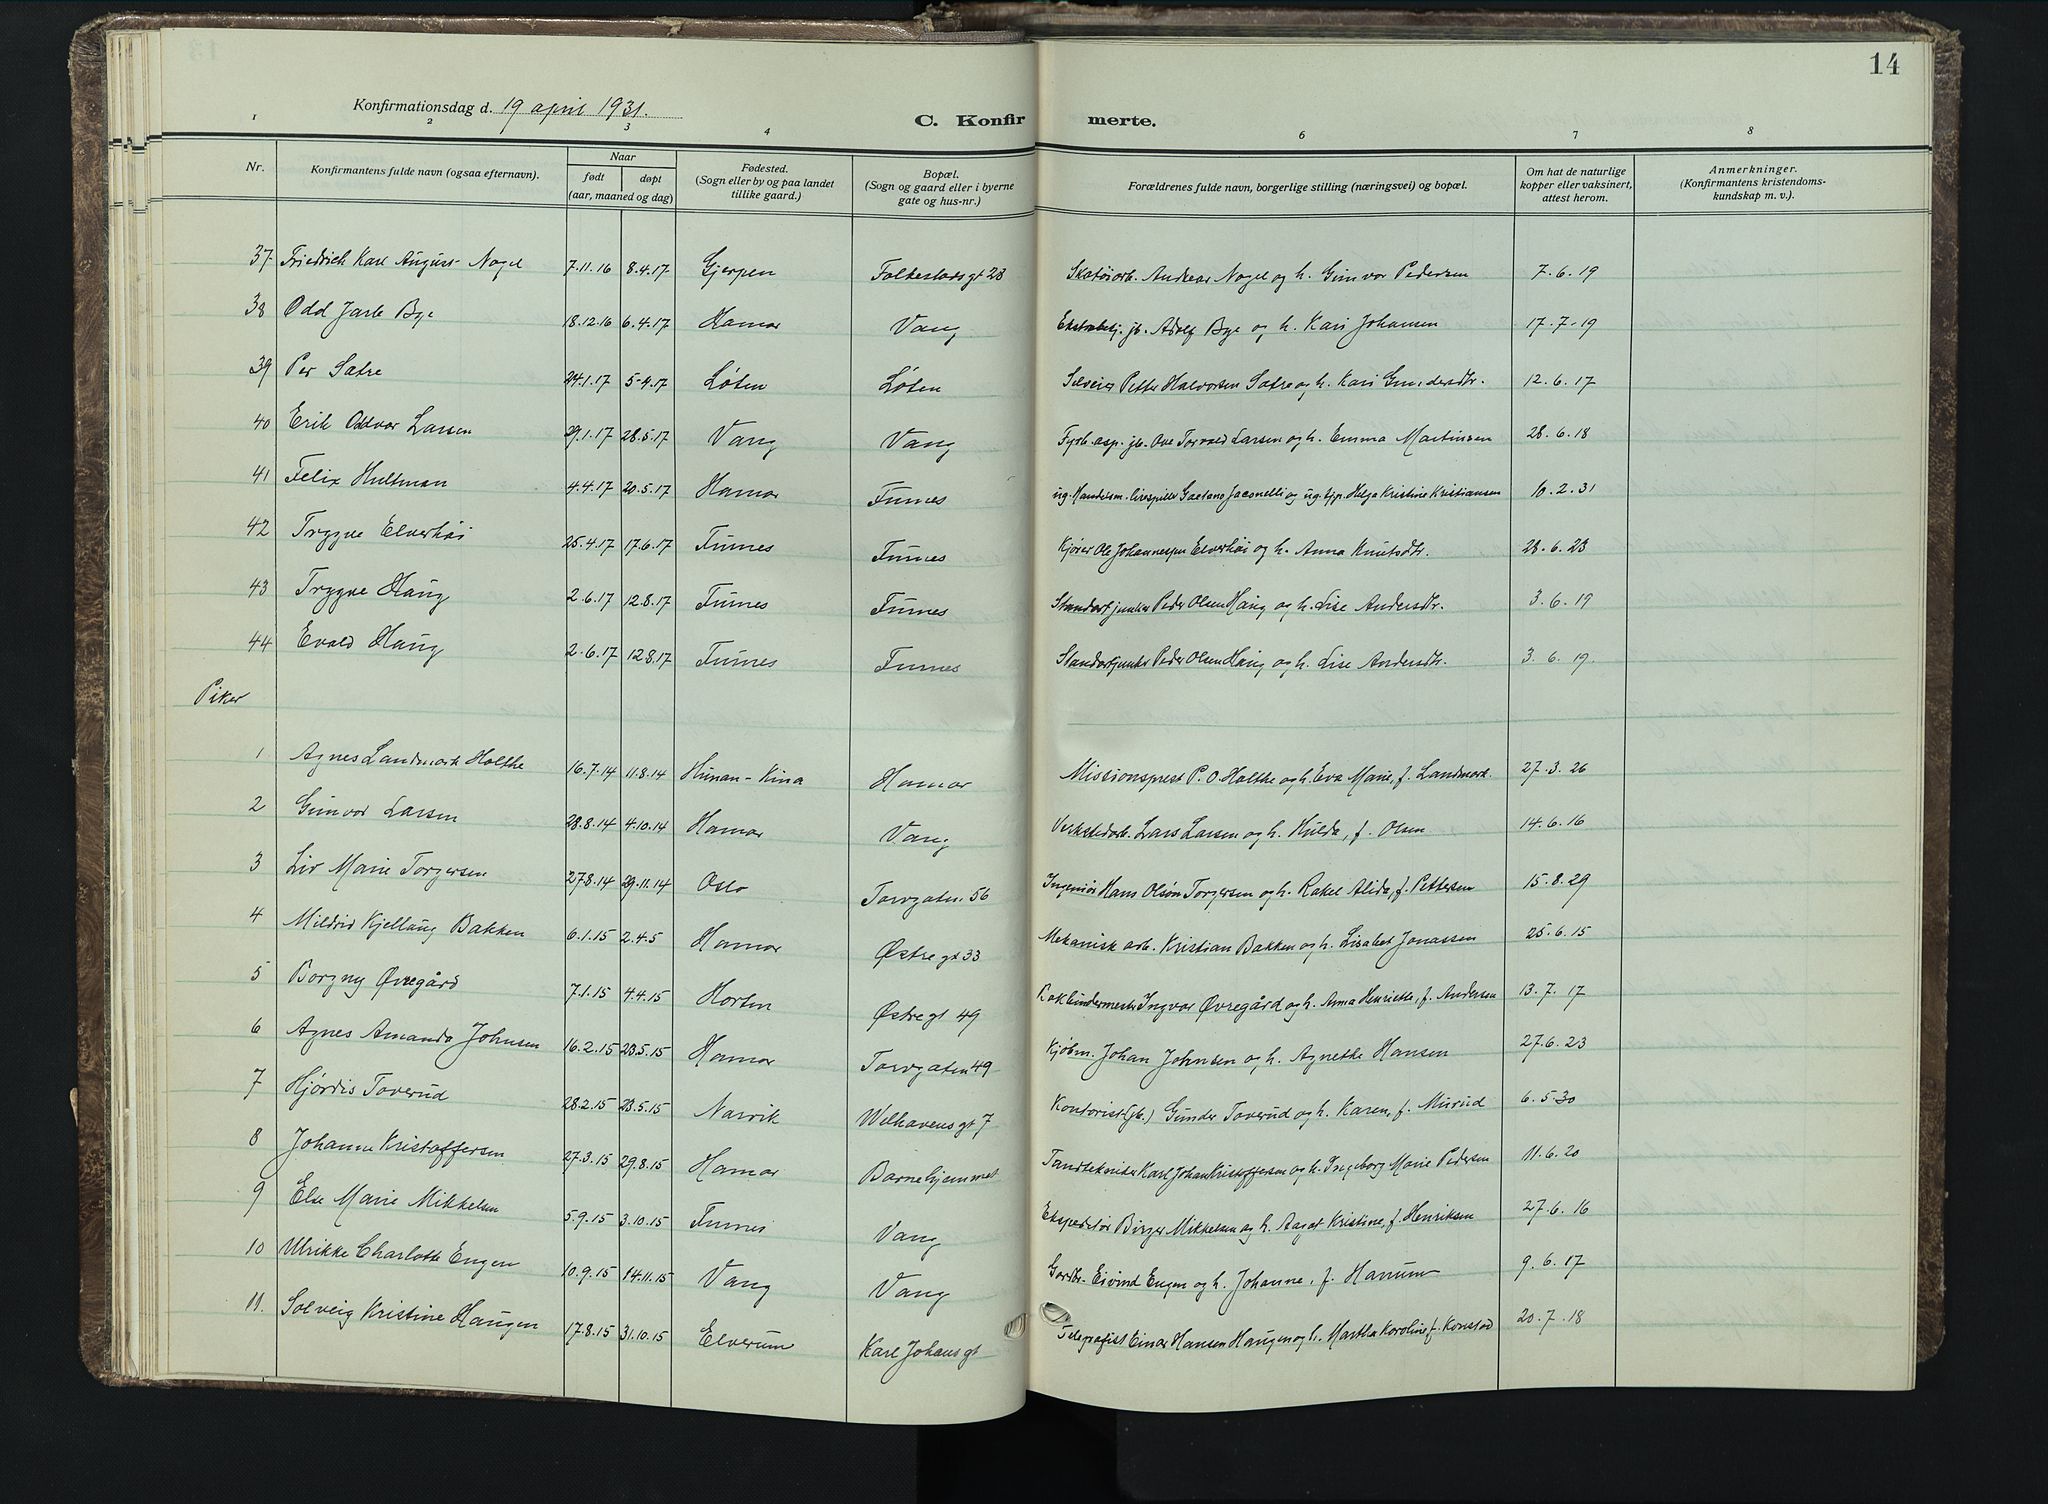 14
Konfirmationsdag d. 19 april 1931.
C. Konfirmerte.
1 2 3 4 6 7 8
Nr.
Konfirmantens fulde navn (ogsaa efternavn).
Naar
født døpt
(aar, maaned og dag)
Fødested.
(Sogn eller by og paa landet
tillike gaard.)
Bopæl.
(Sogn og gaard eller i byerne
gate og hus-nr.)
Forældrenes fulde navn, borgerlige stilling (næringsvei) og bopæl.
Om hat de naturlige
kopper eller vaksinert,
attest herom.
Anmerkninger.
(Konfirmantens kristendoms-
kundskap m. v.).
37 Friedrich Karl August Nagel 7.11.16 8.4.17 Gjerpen Folkestadsgt 28 Andreas Nagel og h. Gunvor Pedersen 7.6.19
38 Odd Jarle Bye 18.12.16 6.4.17 Hamar Vang jb. Adolf Bye og h. Kari Johansen 17.7.19
39 Per Sætre 24.1.17 5.4.17 Løten Løten Selveier Petter Halvorsen Sætre og h. Kari Gundersdtr. 12.6.17
40 Erik Oddvar Larsen 29.1.17 28.5.17 Vang Vang Fyrb. asp. jb. Ove Torvald Larsen og h. Emma Martinsen 28.6.18
41 Felix Hultman 4.4.17 20.5.17 Hamar Furnes ug. Handelsm. lirespiller Gaetano Jaconelli og ug. tjp. Helga Kristine Kristiansen 10.2.31
42 Trygve Elverhøi 25.4.17 17.6.17 Furnes Furnes Kjører Ole Johannesen Elverhøi og h. Anna Knutsdtr. 28.6.23
43 Trygve Haug 2.6.17 12.8.17 Furnes Furnes Standartjunker Peder Olsen Haug og h. Lise Andersdtr. 3.6.19
44 Evald Haug 2.6.17 12.8.17 Furnes Furnes Standartjunker Peder Olsen Haug og h. Lise Andersdtr. 3.6.19.
Piker
1 Agnes Landmark Holthe 16.7.14 11.8.14 Hunan - Kina Hamar Missionsprest P. O Holthe og h. Eva Marie, f. Landmark. 27.3.26
2 Gunvor Larsen 28.8.14 4.10.14 Hamar Vang Verkstedarb. Lars Larsen og h. Hulda, f. Olsen 14.6.16
3 Liv Marie Torgersen 27.8.14 29.11.14 Oslo Torvgaten 56 Ingeniør Hans Olsøn Torgersen og h. Rakel Alida, f. Pettersen 15.8.29
4 Mildrid Kjellaug Bakken 6.1.15 2.4.5 Hamar Østregt 33 Mekanisk arb. Kristian Bakken og h. Lisabet Jonassen 25.6.15
5 Borgny Øvregård 7.1.15 4.4.15 Horten Østregt 49 Bokbindermester Ingvar Øvregård og h. Anna Henriette, f. Andersen 13.7.17
6 Agnes Amanda Johnsen 16.2.15 23.5.15 Hamar Torvgaten 49 Kjøbm. Johan Johnsen og h. Agnethe Hansen 27.6.23
7 Hjørdis Toverud 28.2.15 23.5.15 Narvik Welhavensgt 7 Kontorist (jb.) Gunder Toverud og h. Karen, f. Murud 6.5.30
8 Johanne Kristoffersen 27.3.15 29.8.15 Hamar Barnehjemmet Tandtekniker Karl Johan Kristoffersen og h. Ingeborg Marie Pedersen 11.6.20
9 Else Marie Mikkelsen 5.9.15 3.10.15 Furnes Vang Ekspeditør Birger Mikkelsen og h. Aagot Kristine, f. Henriksen 27.6.16
10 Ulrikke Charlotte Engen 10.9.15 14.11.15 Vang Vang Gardbr. Eivind Engen og h. Johanne, f. Hanum 9.6.17
11. Solveig Kristine Haugen 17.8.15 31.10.15 Elverum Karl Johansgt Telegrafist Einar Hansen Haugen og h. Martha Karoline f. Konstad 20.7.18